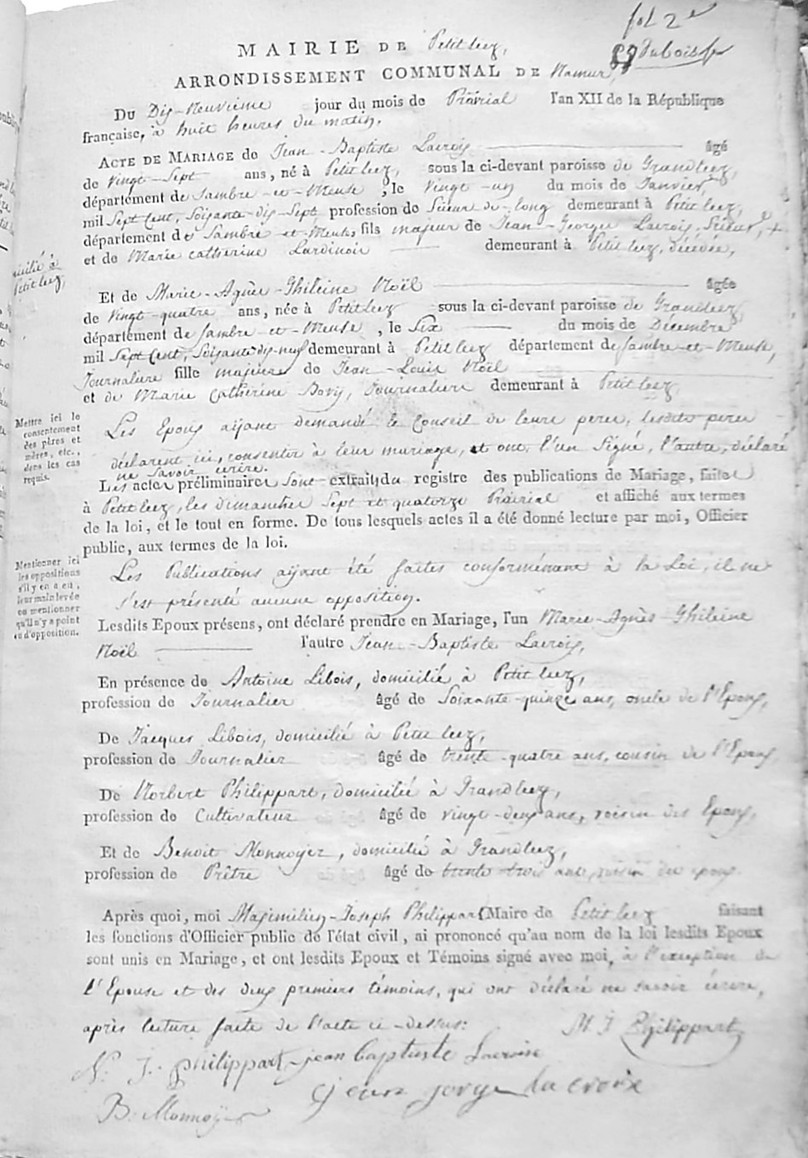 fol 2e
89 Dubois
MAIRIE DE Petit leez,
ARRONDISSEMENT COMMUNAL DE Namur,
Du Dix-Neuvième jour du mois de Prairial l'an XII de la République
française, à huit heures du matin.
ACTE DE MARIAGE de Jean-Baptiste Lacroix âgé
de vingt-sept ans, né à Petit leez, sous la ci-devant paroisse de Grandleez,
département de Sambre-et-Meuse, le vingt-un du mois de Janvier,
mil sept cent, soixante-dix-sept profession de Sieur de-long demeurant à Petit leez,
département de Sambre-et-Meuse fils majeur de Jean-George Lacroix, Sieur, +
et de Marie catherine Lardinoir demeurant à Petit leez, décédée,
domicilié à
Petit leez,
Et de Marie-Agnès-Ghileine Noël âgée
de vingt-quatre ans, née à Petit leez sous la ci-devant paroisse de Grandleez,
département de Sambre-et-Meuse, le six du mois de Décembre
mil sept cent, soixante-dix-neuf demeurant à Petit leez département de Sambre-et-Meuse,
Journaliere fille majeure de Jean-Louis Noël
et de Marie Catherine Bovy, Journaliere demeurant à Petit leez,
Mettre ici le
consentement
des pères et
mères, etc.,
dans les cas
requis.
Les Epoux aijant demandé le Conseil de leurs peres, lesdits peres
déclarent ici, consentir à leur mariage, et ont, l'un signé, l'autre, déclaré
ne savoir écrire.
Les actes préliminaires sont extraits du registre des publications de Mariage, faites
à Petit leez, les dimanches sept et quatorze Prairial et affiché aux termes
de la loi, et le tout en forme. De tous lesquels actes il a été donné lecture par moi, Officier
public, aux termes de la loi.
Mentionner ici
les oppositions
s'il y en a eu,
leur main levée
ou mentionner
qu'il n'y a point
eu d'opposition.
Les Publications aijant été faites conformément à la Loi, il ne
s'est présenté aucune opposition.
Lesdits Epoux présens, ont déclaré prendre en Mariage, l'un Marie-Agnès-Ghileine
Noël l'autre Jean-Baptiste Lacroix,
En présence de Antoine Libois, domicilié à Petit leez,
profession de Journalier âgé de Soixante-quinze ans, oncle de l'Epoux,
De Jacques Libois, domicilié à Petit leez,
profession de Journalier âgé de trente-quatre ans, cousin de l'Epoux,
De Norbert Philippart, domicilié à Grandleez,
profession de Cultivateur âgé de vingt-deux ans, voisin des Epoux,
Et de Benoit Monnoyer, domicilié à Grandleez,
profession de Prêtre âgé de trente trois ans, voisin des epoux.
Après quoi, moi Maximilien-Joseph Philippart Maire de Petit leez faisant
les fonctions d'Officier public de l'état civil, ai prononcé qu'au nom de la loi lesdits Epoux
sont unis en Mariage, et ont lesdits Epoux et Témoins signé avec moi, à l'exception de
l'Epouse et des deux premiers témoins, qui ont déclaré ne savoir écrire,
après lecture faite de l'acte ci-dessus: M J Philippart
N. J. philippart jean baptiste Lacroix
jean jorge la croix
B. Monnoyer